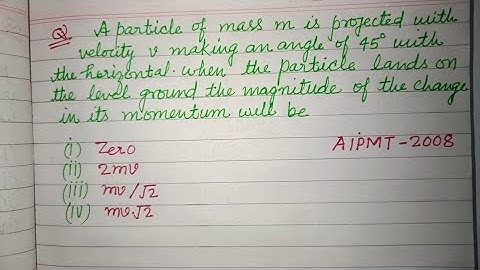 Q A particle of mass m is projected with
velocity v making an angle of 45° with
the horizontal. when the particle lands on
the level ground the magnitude of the change
in its momentum will be
(i) Zero AIPMT-2008
(ii) 2mv
(iii) mv/√2
(iv) mv√2